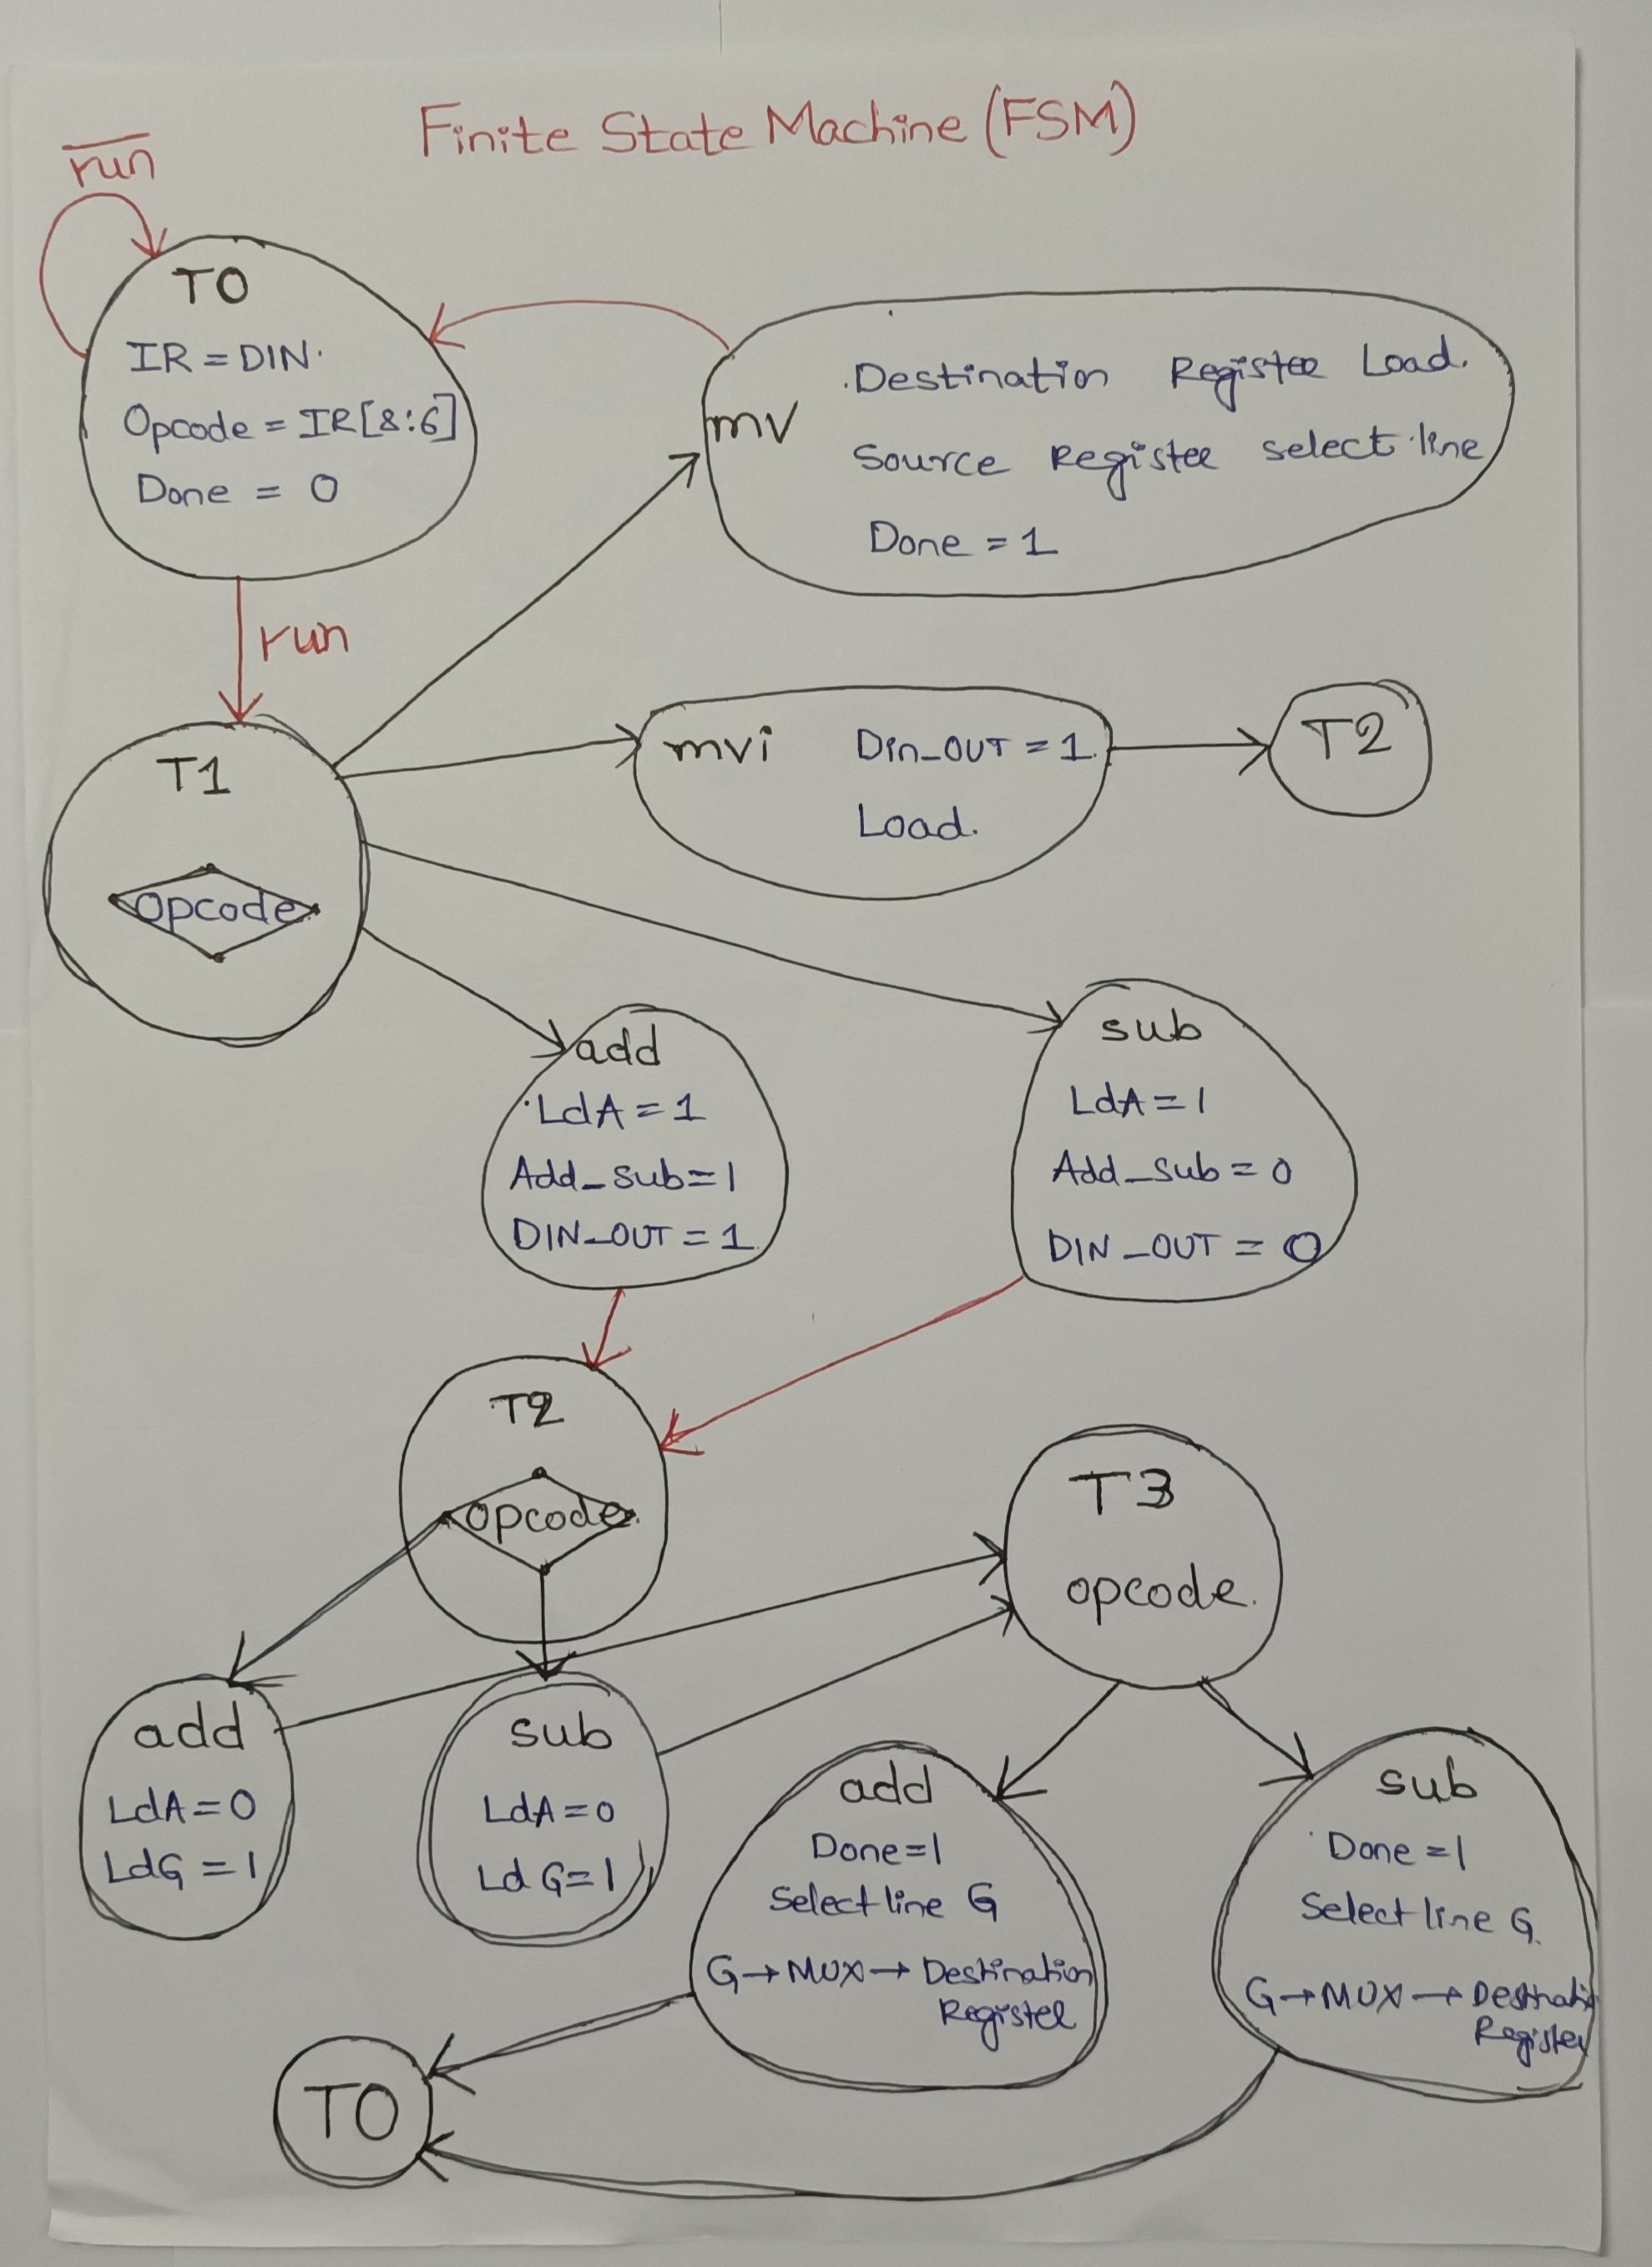 Finite State Machine (FSM)
run
T0
IR = DIN.
Opcode = IR[8:6]
Done = 0
mv
Destination Register Load.
Source Register select line
Done = 1
run
T1
opcode
mvi
Din_OUT = 1
Load.
T2
add
LdA = 1
Add_sub=1
DIN_OUT = 1
sub
LdA = 1
Add_sub = 0
DIN_OUT = 0
T2
opcode
T3
opcode.
add
LdA = 0
LdG = 1
sub
LdA = 0
LdG=1
add
Done=1
Select line G
G→MUX→ Destination
Register
sub
Done =1
Select line G.
G→MUX→ Destination
Register
T0